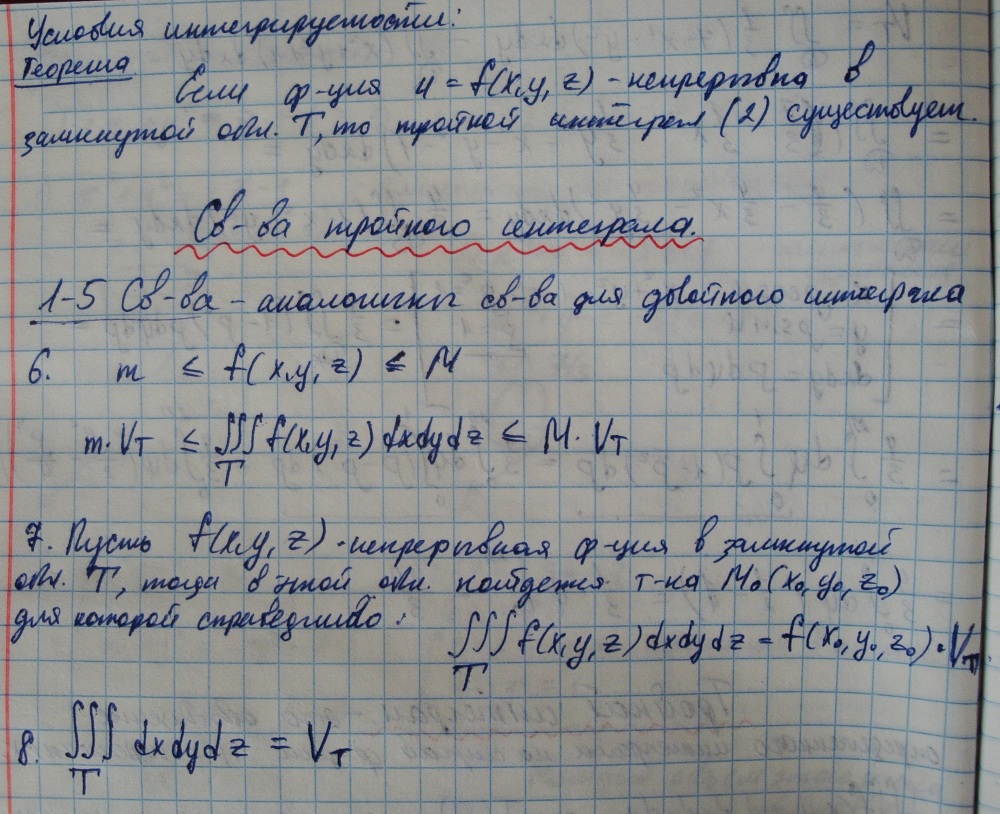 Условия интегрируемости:
Теорема
Если ф-ция u = f(x,y,z) - непрерывна в
замкнутой обл. T, то тройной интеграл (2) существует.
Св-ва тройного интеграла.
1-5 Св-ва - аналогичны св-ва для двойного интеграла
6. m ≤ f(x,y,z) ≤ M
m·V_T ≤ ∭_T f(x,y,z) dxdydz ≤ M·V_T
7. Пусть f(x,y,z) - непрерывная ф-ция в замкнутой
обл. T, тогда в этой обл. найдется т-ка M₀(x₀,y₀,z₀)
для которой справедливо:
∭_T f(x,y,z) dxdydz = f(x₀,y₀,z₀)·V_T.
8. ∭_T dxdydz = V_T